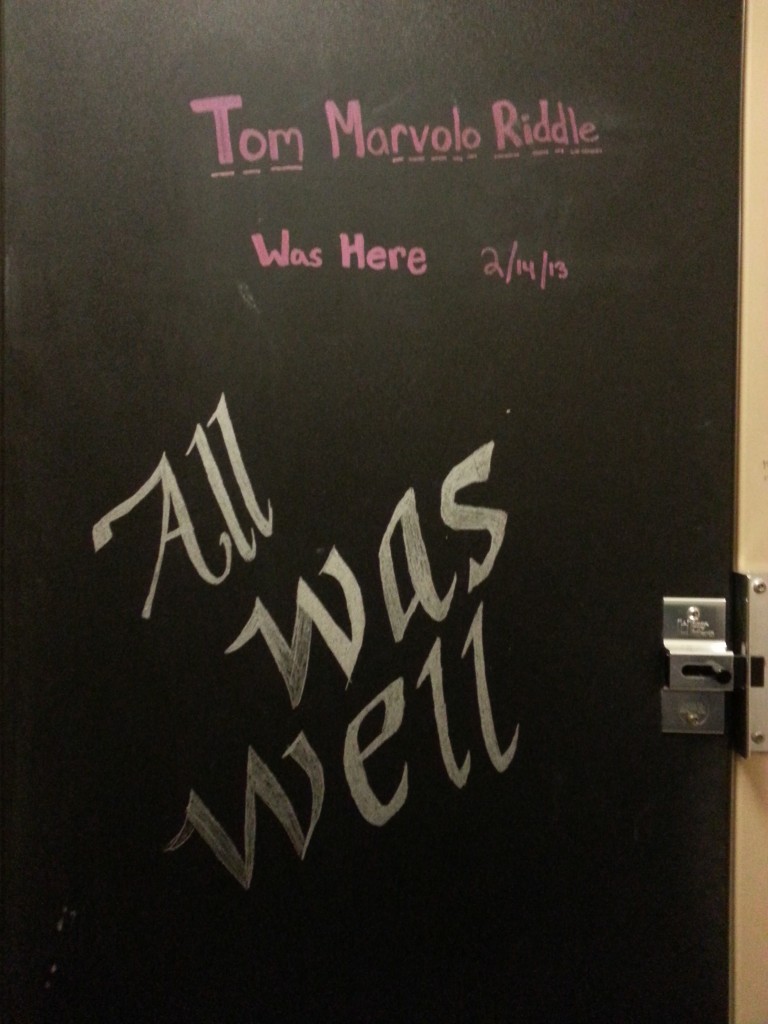 Tom Marvolo Riddle
Was Here 2/14/13
All
was
well